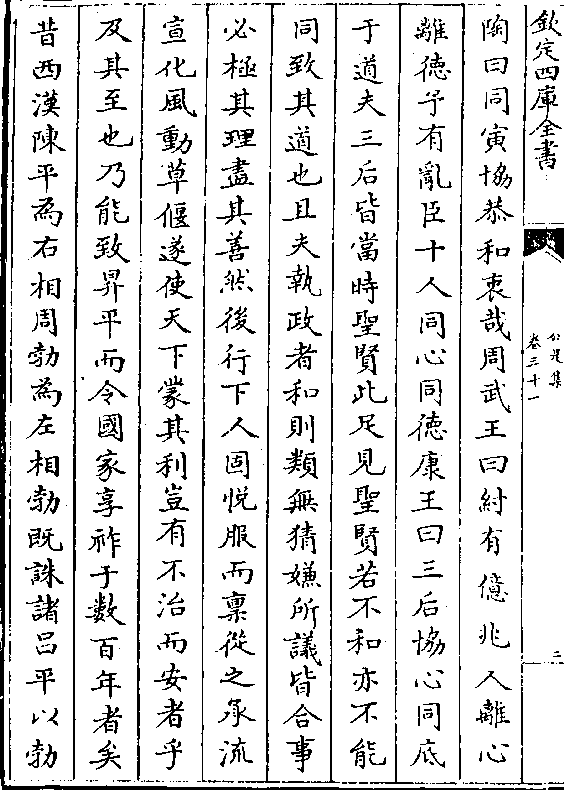 欽定四庫全書
公是集
卷三十一
二
陶曰同寅協恭和衷哉周武王曰紂有億兆人離心
離德予有亂臣十人同心同徳康王曰三后協心同底
于道夫三后皆當時聖賢此足見聖賢若不和亦不能
同致其道也且夫執政者和則類無猜嫌所議皆合事
必極其理盡其善然後行下人固悦服而稟從之承流
宣化風動草偃遂使天下蒙其利豈有不治而安者乎
及其至也乃能致昇平而令國家享祚于數百年者矣
昔西漢陳平為右相周勃為左相勃既誅諸呂平以勃